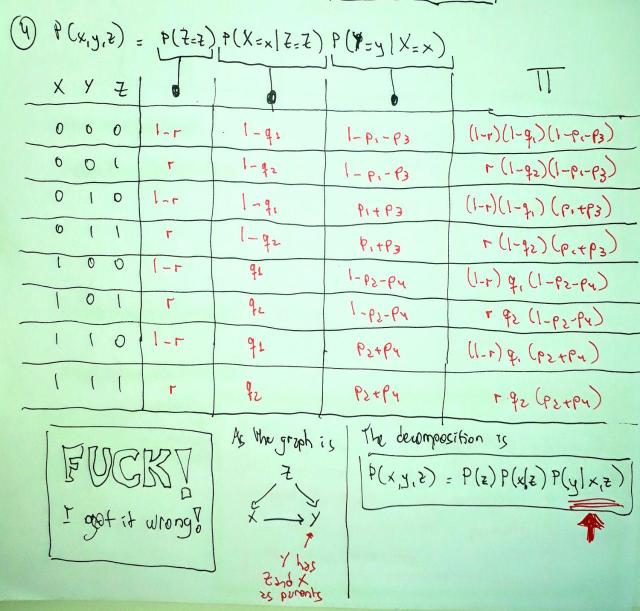 4 P(x,y,z) = P(Z=z) P(X=x|Z=z) P(Y=y|X=x)
X Y Z Π
0 0 0 1-r 1-q1 1-p1-p3 (1-r)(1-q1)(1-p1-p3)
0 0 1 r 1-q2 1-p1-p3 r(1-q2)(1-p1-p3)
0 1 0 1-r 1-q1 p1+p3 (1-r)(1-q1)(p1+p3)
0 1 1 r 1-q2 p1+p3 r(1-q2)(p1+p3)
1 0 0 1-r q1 1-p2-p4 (1-r) q1 (1-p2-p4)
1 0 1 r q2 1-p2-p4 r q2 (1-p2-p4)
1 1 0 1-r q1 p2+p4 (1-r) q1 (p2+p4)
1 1 1 r q2 p2+p4 r q2 (p2+p4)
FUCK!
I got it wrong!
As the graph is
Z
X Y
Y has
Z and X
as parents
The decomposition is
P(x,y,z) = P(z) P(x|z) P(y|x,z)